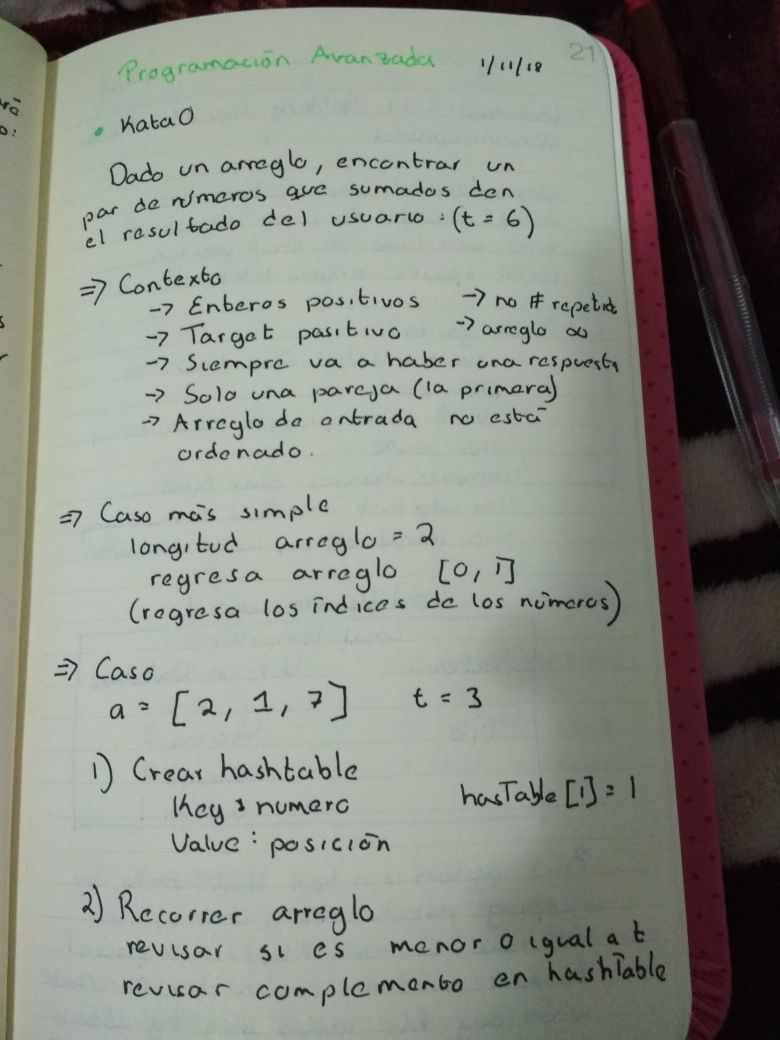 21
Programación Avanzada 1/11/18
• Kata 0
Dado un arreglo, encontrar un
par de números que sumados den
el resultado del usuario: (t = 6)
=> Contexto
-> Enteros positivos -> no # repetid
-> Target positivo -> arreglo ∞
-> Siempre va a haber una respuesta
-> Solo una pareja (la primera)
-> Arreglo de entrada no está
ordenado.
=> Caso más simple
longitud arreglo = 2
regresa arreglo [0, 1]
(regresa los índices de los números)
=> Caso
a = [2, 1, 7] t = 3
1) Crear hashtable
Key : numero hasTable [1] = 1
Value : posición
2) Recorrer arreglo
revisar si es menor o igual a t
revisar complemento en hashTable